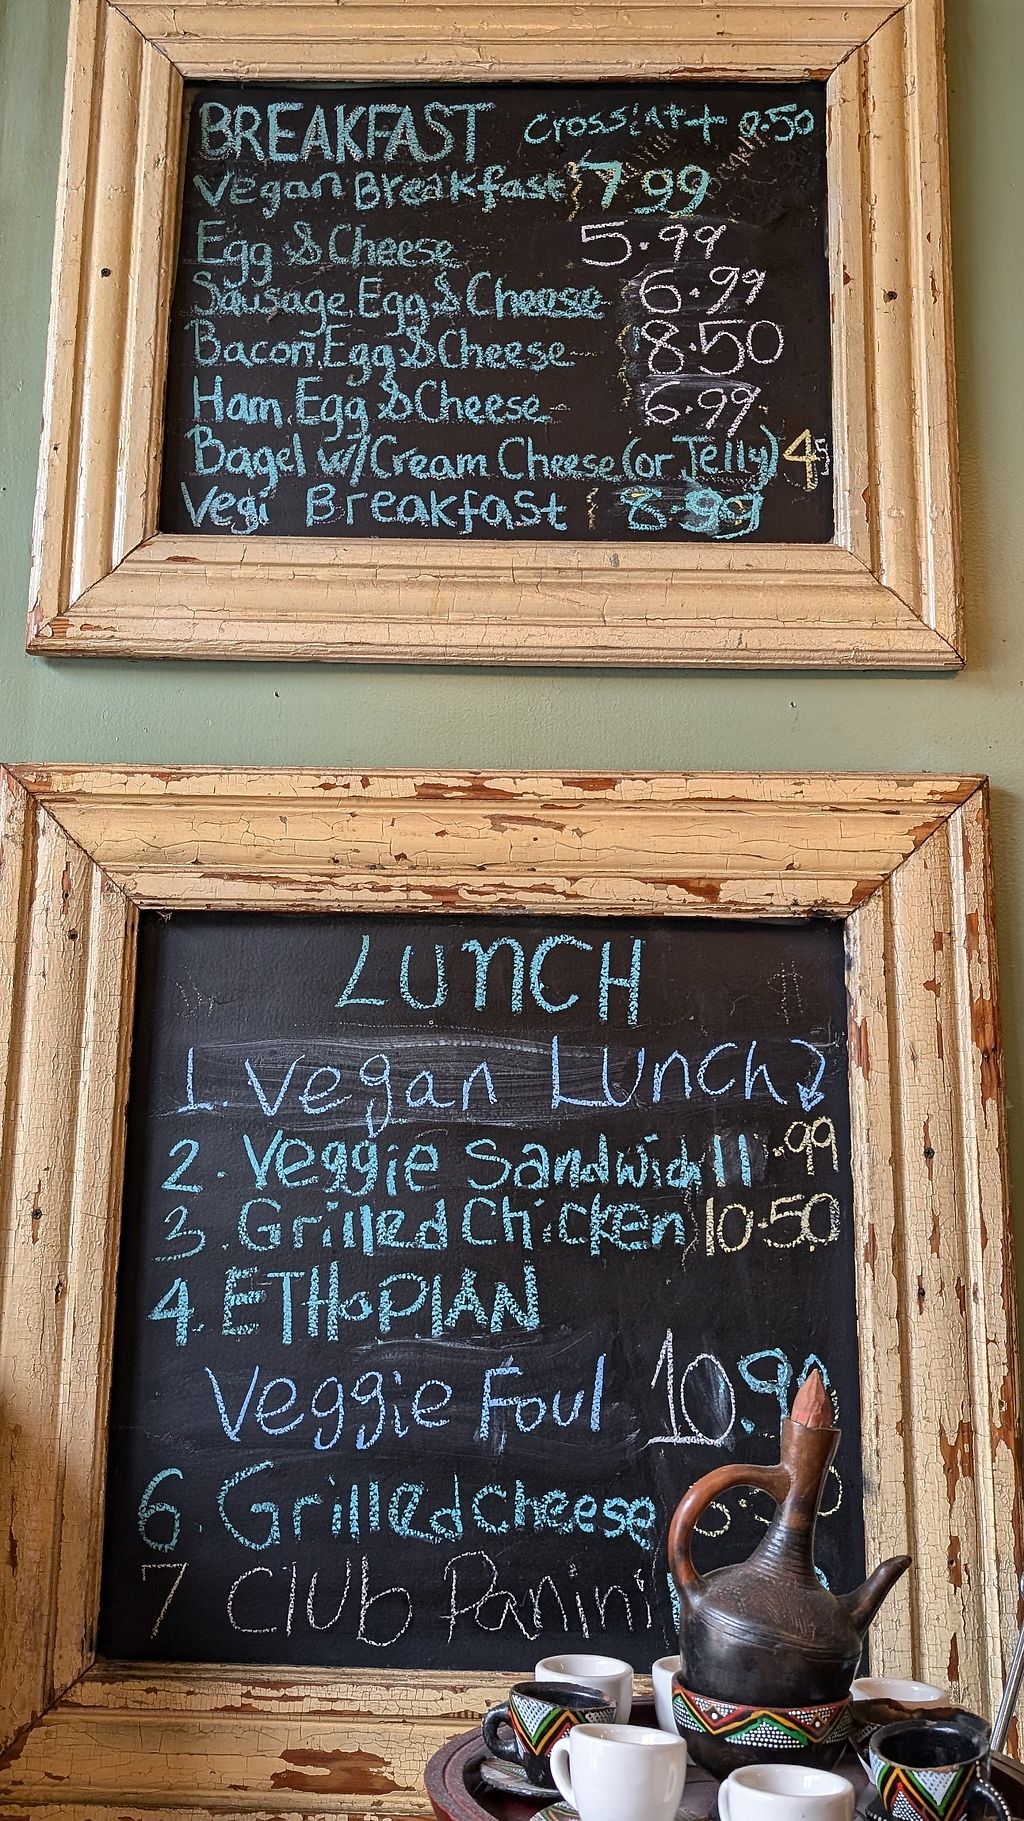 BREAKFAST
+ 0.50
Vegan Breakfast 7 99
Egg & Cheese 5.99
Sausage, Egg & Cheese 6.99
Bacon, Egg & Cheese 8.50
Ham, Egg & Cheese 6.99
Bagel w/ Cream Cheese (or Jelly) 4
Vegi Breakfast 8.99
LUNCH
1. Vegan Lunch
2. Veggie Sandwich 11.99
3. Grilled Chicken 10.50
4. ETHoPIAN
Veggie Foul 10.99
6. Grilled cheese
7 Club Panini